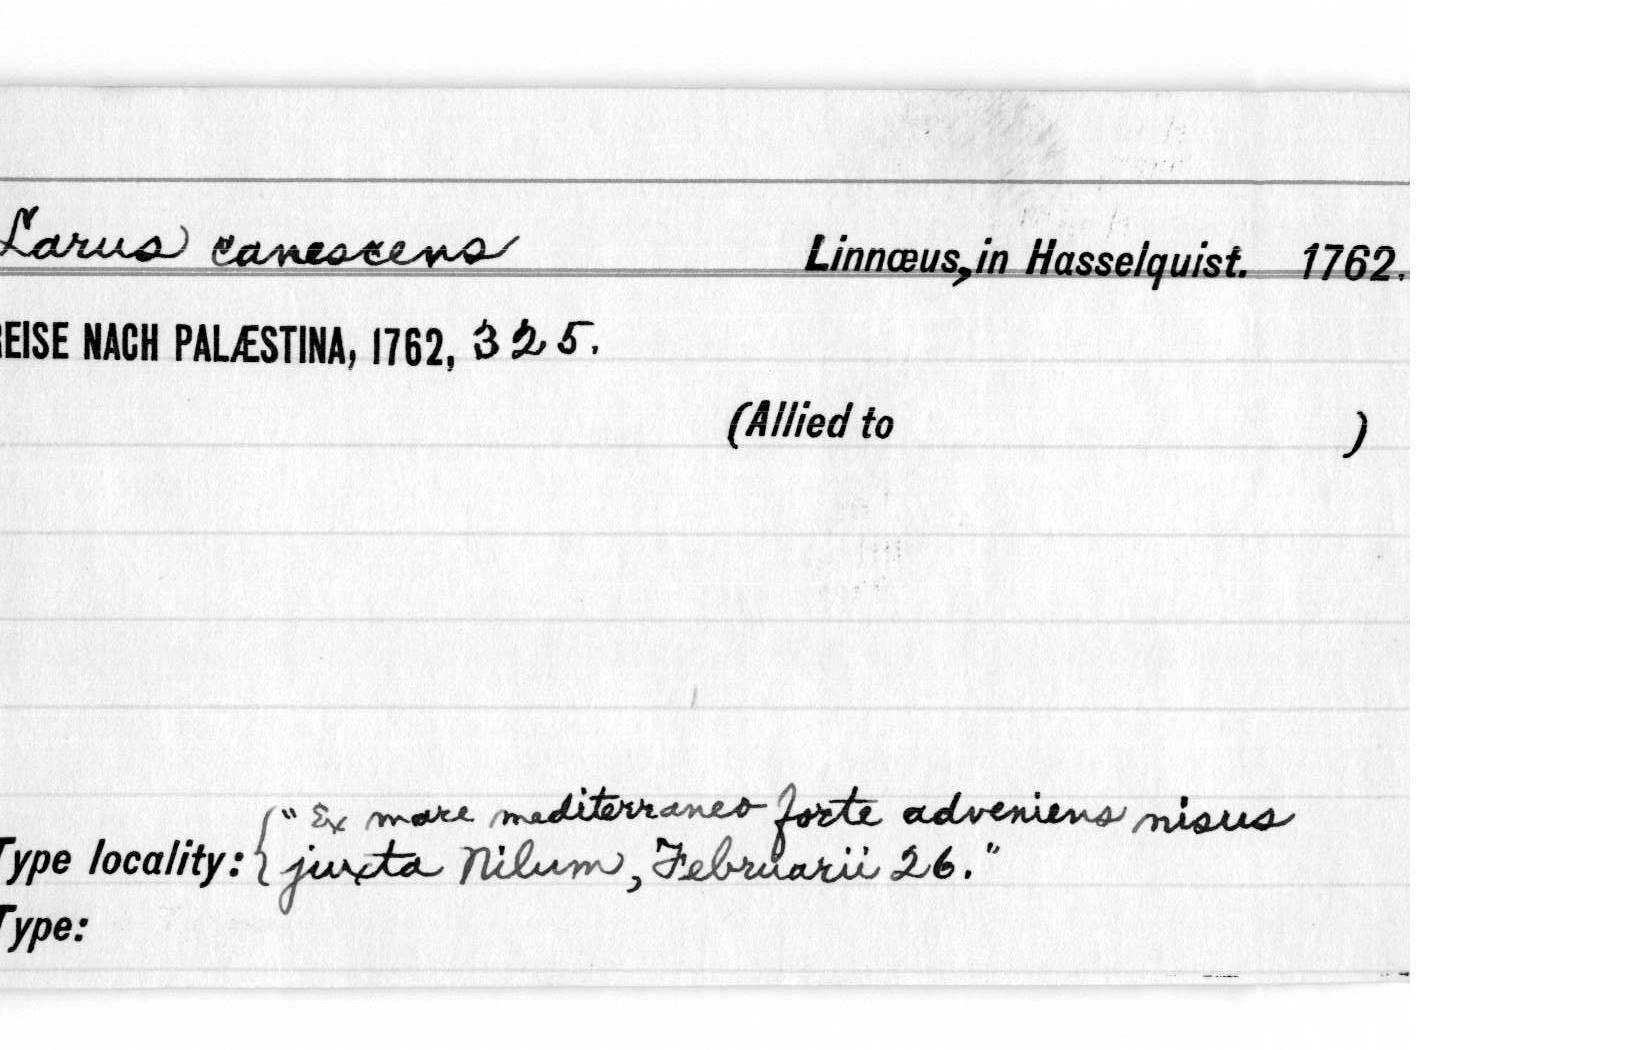 Larus canescens Linnæus, in Hasselquist. 1762.
REISE NACH PALÆSTINA, 1762, 325.
(Allied to )
Type locality: { "Ex mare mediterraneo forte adveniens nisus
juxta Nilum, Februarii 26."
Type: